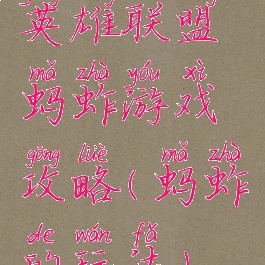 英雄联盟
mǎ zhà yóu xì
蚂蚱游戏
gōng lüè ( mǎ zhà
攻略(蚂蚱
de wán fǎ
的玩法)